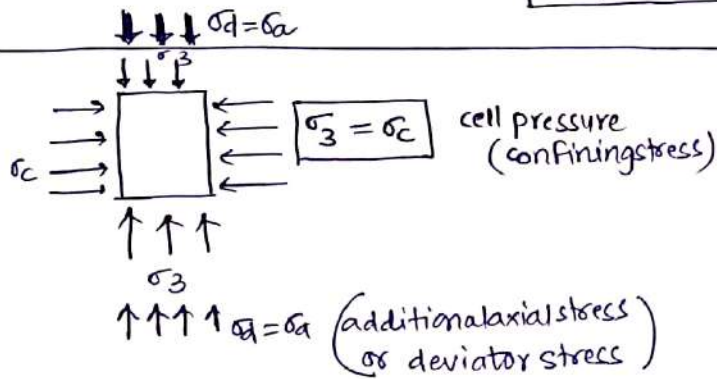 σd=σa
σ3
σc
σ3 = σc
cell pressure
(confiningstress)
σ3
σd=σa (additionalaxialstress
or deviator stress)